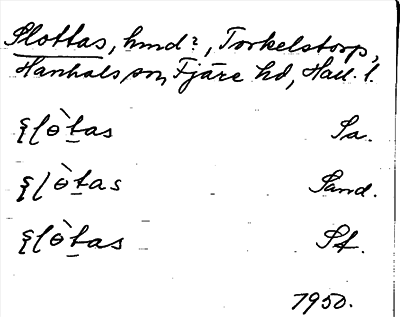 Slottas, hmd?, Torkelstorp,
Hanhals sn, Fjäre hd, Hall. l.
ʂɭɵ̀tas Sa.
ʂɭɵ̀tas Sand.
ʂɭɵ̀tas Sf.
1950.